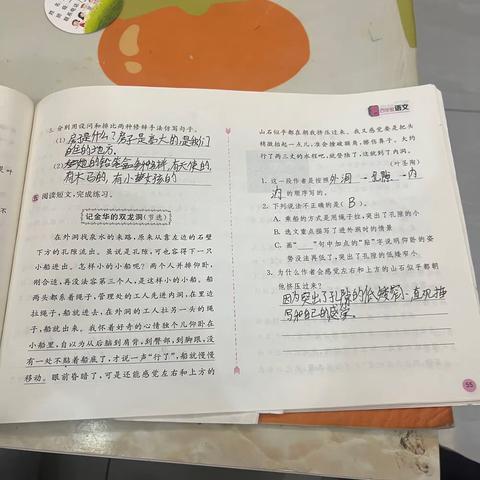 四年级 语文
5. 分别用设问和排比两种修辞手法仿写句子。
(1) 房子是什么？房子是高大的是我们
住的地方。
(2)
有木马的，有小
五 阅读短文，完成练习。
记金华的双龙洞(节选)
在外洞找泉水的来路，原来从靠左边的石壁
下方的孔隙流出。虽说是孔隙，可也容得下一只
小船进出。怎样小的小船呢？两个人并排仰卧，
刚合适，再没法容第三个人，是这样小的小船。船
两头都系着绳子，管理处的工人先进内洞，在里边
拉绳子，船就进去，在外洞的工人拉另一头的绳
子，船就出来。我怀着好奇的心情独个儿仰卧在
小船里，自以为从后脑到肩背，到臀部，到脚跟，没
有一处不贴着船底了，才说一声“行了”，船就慢慢
移动。眼前昏暗了，可是还能感觉左右和上方的
山石似乎都在朝我挤压过来。我又感觉要是把头
稍微抬起一点儿，准会撞破额角，擦伤鼻子。大约
行了两三丈的水程吧，就登陆了，这就到了内洞。
(叶圣陶)
1. 这一段作者是按照外洞→孔隙→内
洞的顺序写的。
2. 下列说法不正确的是( B )。
A. 乘船的方式是用绳子拉，突出了孔隙的小
B. 选文重点描写了进外洞时的情景
C. 画“____”句中加点的“贴”字说明仰卧的姿
势没法再低了，突出了孔隙的低矮窄小
3. 为什么作者会感觉左右和上方的山石似乎都朝
他挤压过来？
因为突出了孔隙的低矮窄小，直观描
写和自己的感觉。
55